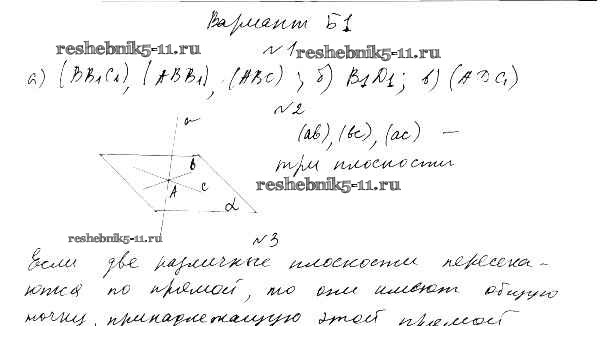 Вариант Б1
reshebnik5-11.ru
reshebnik5-11.ru
№1
а) (BB₁C₁), (ABB₁), (ABC) ; б) B₁D₁; в) (ADC₁)
№2
a
(ab), (bc), (ac) —
три плоскости
b
A
c
α
reshebnik5-11.ru
reshebnik5-11.ru
№3
Если две различные плоскости пересека-
ются по прямой, то они имеют общую
точку, принадлежащую этой прямой